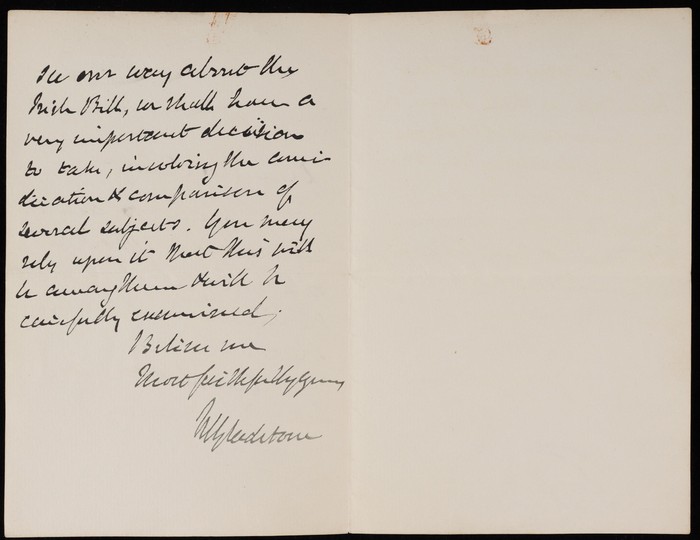 see our way about the
Irish Bill, we shall have a
very important decision
to take, involving the consi-
deration & comparison of
several subjects. You may
rely upon it that this will
be among them & will be
carefully examined;
Believe me
Most faithfully yours
WEGladstone